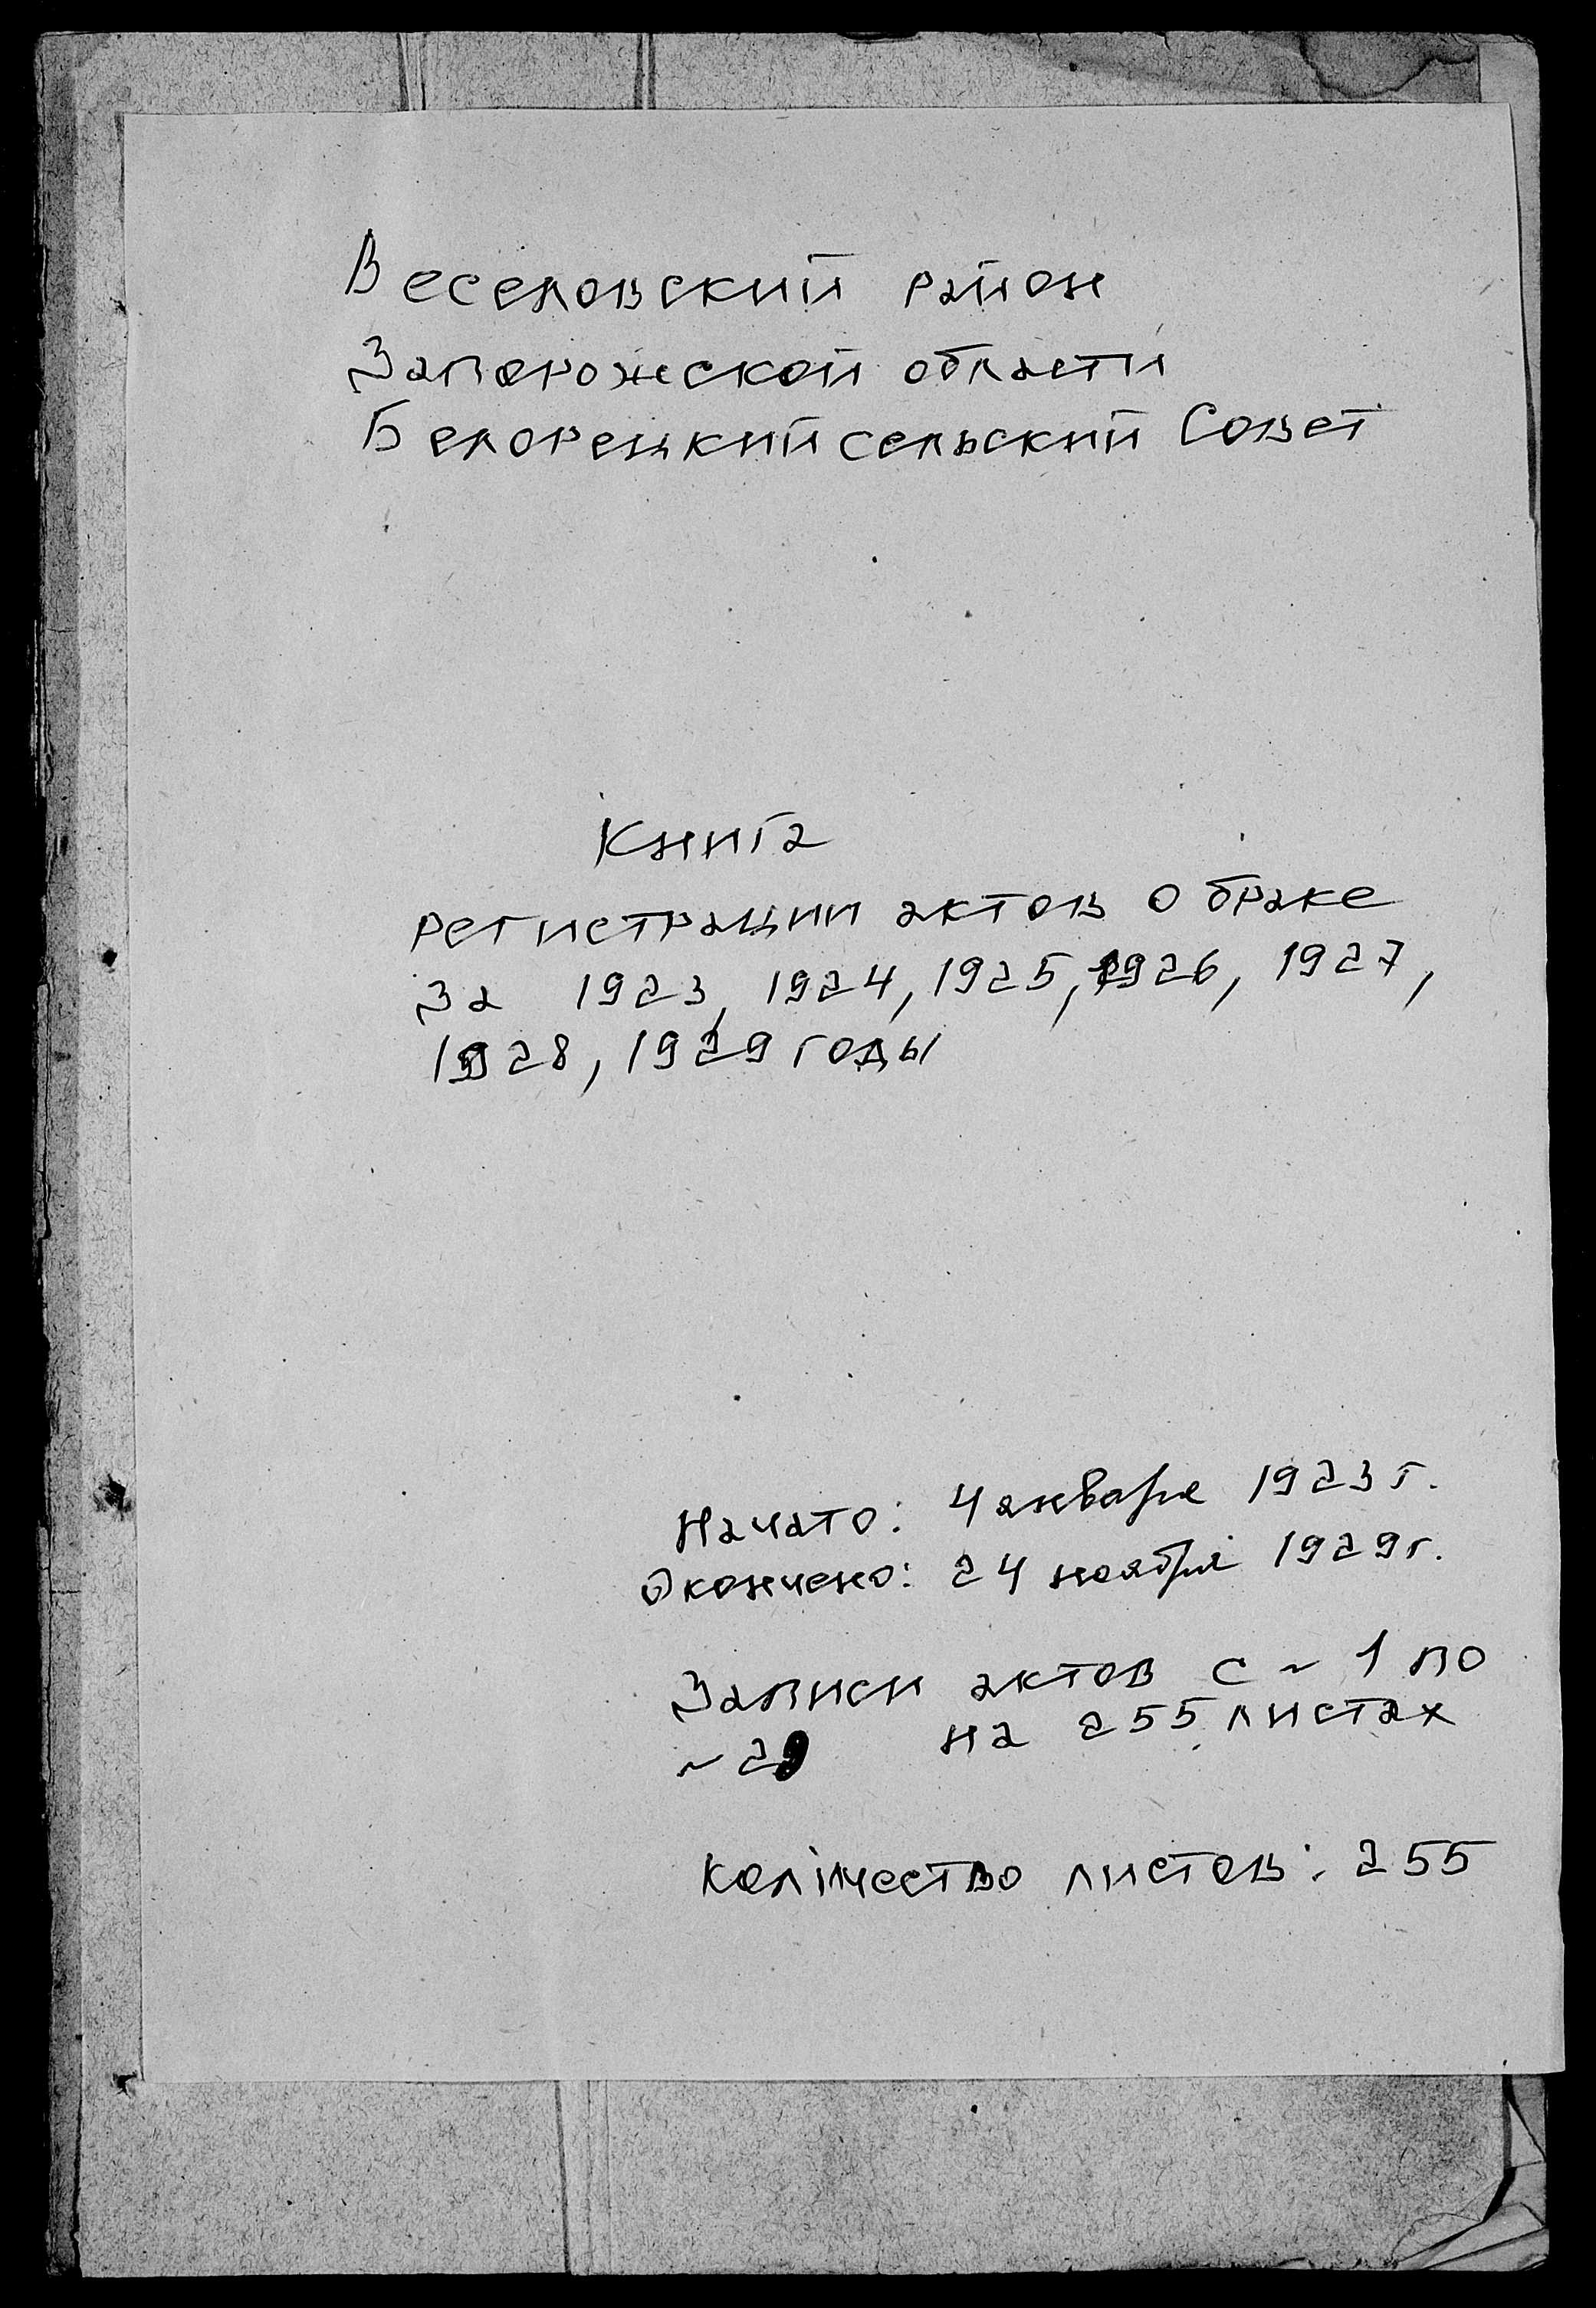 Веселовский район
Запорожской области
Белорецкий сельский Совет
Книга
регистрации актов о браке
за 1923, 1924, 1925, 1926, 1927,
1928, 1929 годы
Начато: 4 января 1923 г.
Окончено: 24 ноября 1929 г.
Записи актов с ~ 1 по
~ 29 на 255 листах
Колічество листов: 255